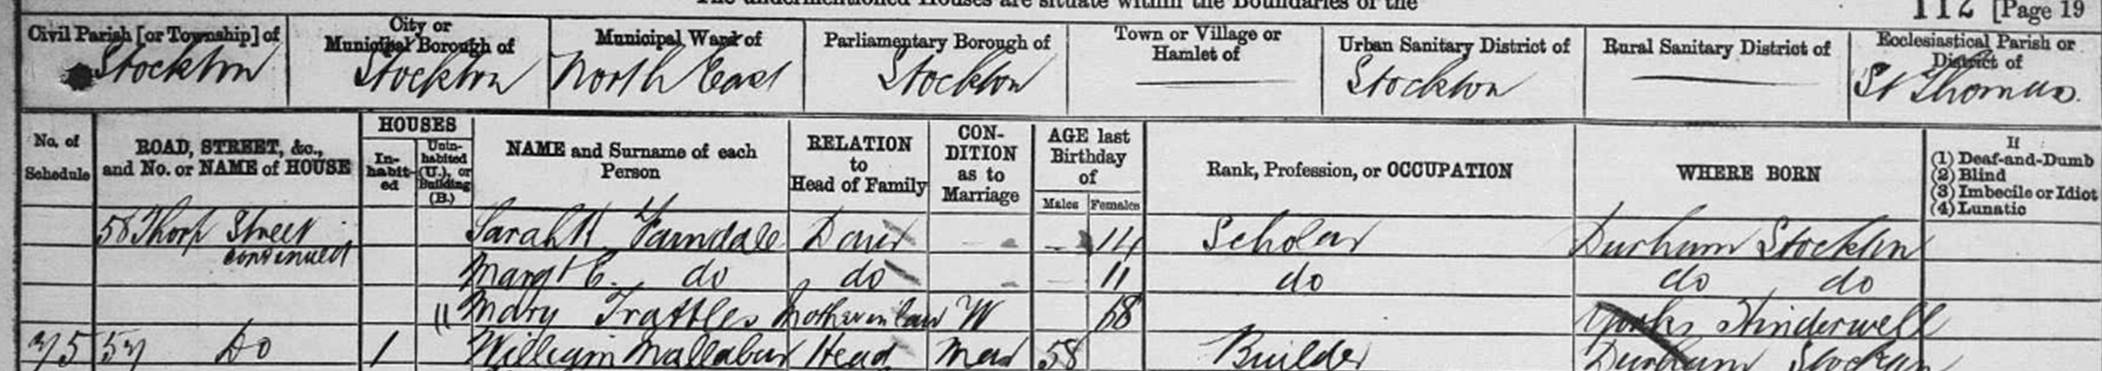 The undermentioned Houses are situate within the Boundaries of the
112 [Page 19
Civil Parish [or Township] of City or Municipal Borough of Municipal Ward of Parliamentary Borough of Town or Village or Hamlet of Urban Sanitary District of Rural Sanitary District of Ecclesiastical Parish or District of
Stockton Stockton North East Stockton Stockton St Thomas.
No. of Schedule ROAD, STREET, &c., and No. or NAME of HOUSE HOUSES In-habit-ed Unin-habited (U.), or Building (B.) NAME and Surname of each Person RELATION to Head of Family CON-DITION as to Marriage AGE last Birthday of Males Females Rank, Profession, or OCCUPATION WHERE BORN If (1) Deaf-and-Dumb (2) Blind (3) Imbecile or Idiot (4) Lunatic
58 Thorp Street Sarah H Farndale Daur 14 Scholar Durham Stockton
continued
Margt E. do do 11 do do do
Mary Trattles Mother in law W 68 Yorks Hinderwell
75 57 Do 1 William Mallabar Head Mar 58 Builder Durham Stockton